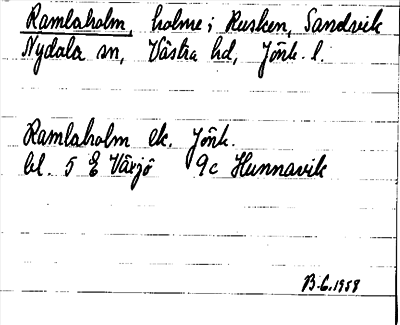 Ramlaholm, holme i Rusken, Sandvik
Nydala sn, Västra hd, Jönk. l.
Ramlaholm ek. Jönk.
bl. 5 E Växjö 9c Hunnavik
B.G.1958